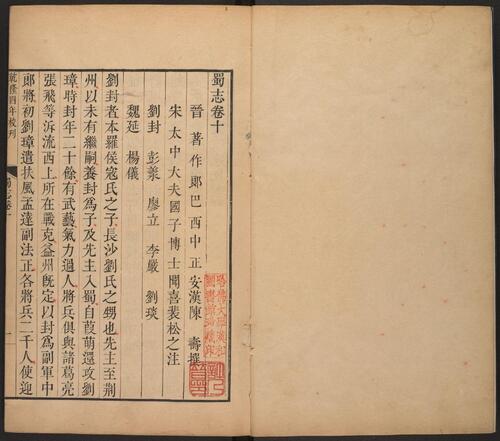 蜀志卷十
晉著作郎巴西中正安漢陳壽撰
宋太中大夫國子博士聞喜裴松之注
劉封 彭羕 廖立 李嚴 劉琰
魏延 楊儀
劉封者本羅侯寇氏之子長沙劉氏之甥也先主至荊
州以未有繼嗣養封為子及先主入蜀自葭萌還攻劉
璋時封年二十餘有武藝氣力過人將兵俱與諸葛亮
張飛等泝流西上所在戰克益州既定以封為副軍中
郎將初劉璋遣扶風孟達副法正各將兵二千人使迎
乾隆四年校刊